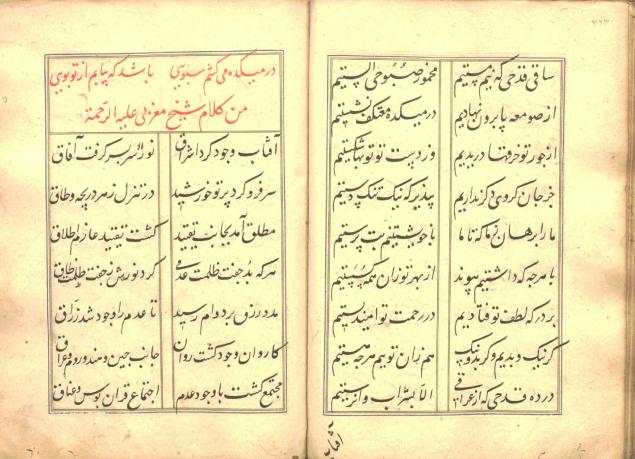 ساقی قدحی که نیم مستیم مخمور صبوحی الستیم
از صومعه پا برون نهادیم در میکده معتکف نشستیم
از جور تو خرقها دریدیم وز دست تو توبها شکستیم
جز جان گروی دگر نداریم بپذیر که نیک تنک دستیم
ما را برهان ز ما که تا ما با خویشتنیم بت پرستیم
با هرچه که داشتیم پیوند از بهر تو زان همه گسستیم
بر درکه لطف تو فتادیم در رحمت تو امید بستیم
گر نیک و بدیم ور بد و نیک هم زان توییم هرچه هستیم
در ده قدحی که از عراقی الا بشراب وا نرستیم
آفتاب
در میکده می کشم سبویی باشد که بیابم از تو بویی
من کلام شیخ مغربی علیه الرحمة
آفتاب وجود کرد اشراق نور او سر بسر گرفت آفاق
سر فرو کرد پرتو خورشید در تنزل ز هر دریچه و طاق
مطلق آمد بجانب تقیید گشت تقیید عازم اطلاق
هر که بد جفت ظلمت عدمی کرد نورش ز جفت ظلمت طاق
مدد رزق بر دوام رسید تا عدم را وجود شد رزاق
کاروان وجود گشت روان جانب چین و هند و روم و عراق
مجتمع گشت با وجود عدم اجتماع قران بوس و عناق